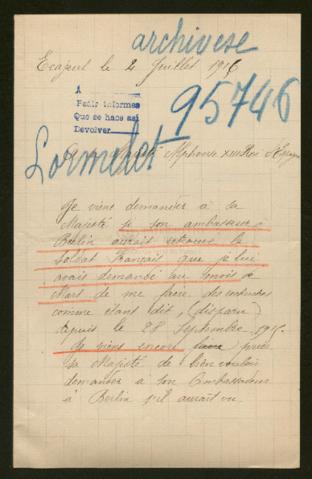 archivese
Ecapeul le 2 Juillet 1916
A
Pedir informes
Que se hace así
Devolver
95746
Lormelet
A sa Majesté Alphonse XIII Roi d'Espagne
Je viens demander à sa
Majesté si son ambassadeur
Berlin aurait retrouvé le
Soldat Français que je lui
avais demandé au mois de
Mart de me faire des recherches
comme étant dit, (disparu)
depuis le 28 Septembre 1915.
Je viens encore prier
Sa Majesté de bien vouloir
demander à son Ambassadeur
à Berlin s'il aurait vu